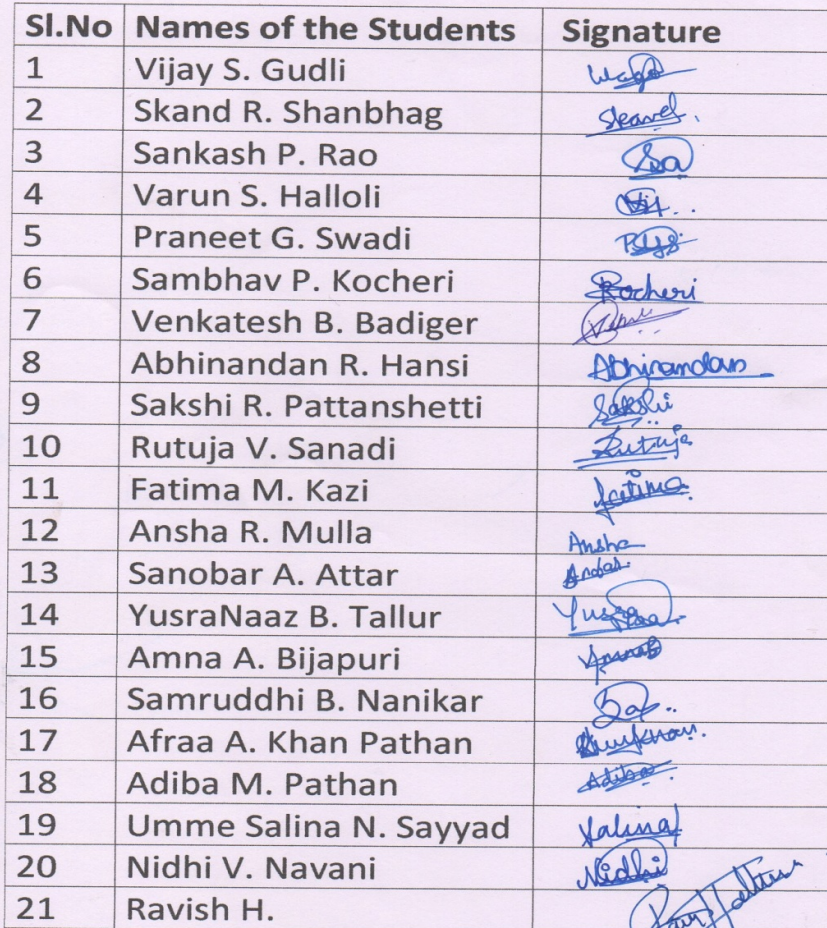 Sl.No Names of the Students Signature
1 Vijay S. Gudli
2 Skand R. Shanbhag
3 Sankash P. Rao
4 Varun S. Halloli
5 Praneet G. Swadi
6 Sambhav P. Kocheri Kocheri
7 Venkatesh B. Badiger
8 Abhinandan R. Hansi Abhinandan
9 Sakshi R. Pattanshetti Sakshi
10 Rutuja V. Sanadi Rutuja
11 Fatima M. Kazi fatima
12 Ansha R. Mulla Ansha
13 Sanobar A. Attar
14 YusraNaaz B. Tallur
15 Amna A. Bijapuri
16 Samruddhi B. Nanikar
17 Afraa A. Khan Pathan
18 Adiba M. Pathan Adiba
19 Umme Salina N. Sayyad Salina
20 Nidhi V. Navani Nidhi
21 Ravish H.